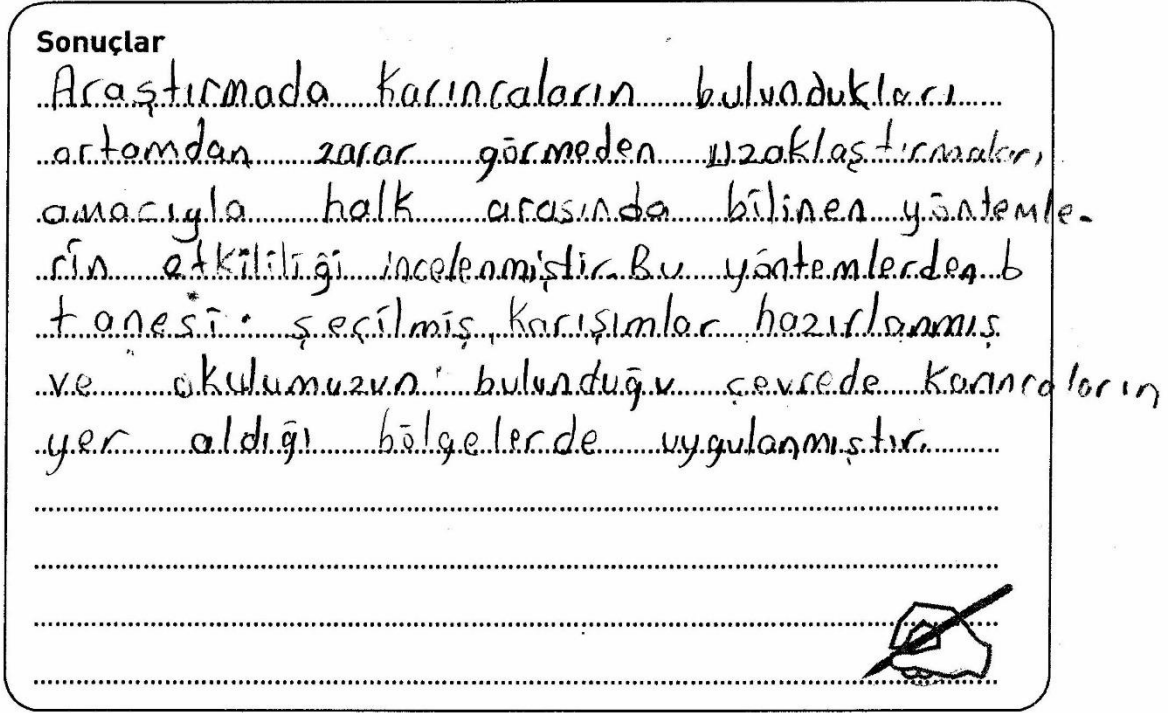 Sonuçlar
Araştırmada karıncaların bulundukları
ortamdan zarar görmeden uzaklaştırmaları
amacıyla halk arasında bilinen yöntemle-
rin etkililiği incelenmiştir. Bu yöntemlerden 6
tanesi seçilmiş, karışımlar hazırlanmış
ve okulumuzun bulunduğu çevrede karıncaların
yer aldığı bölgelerde uygulanmıştır.